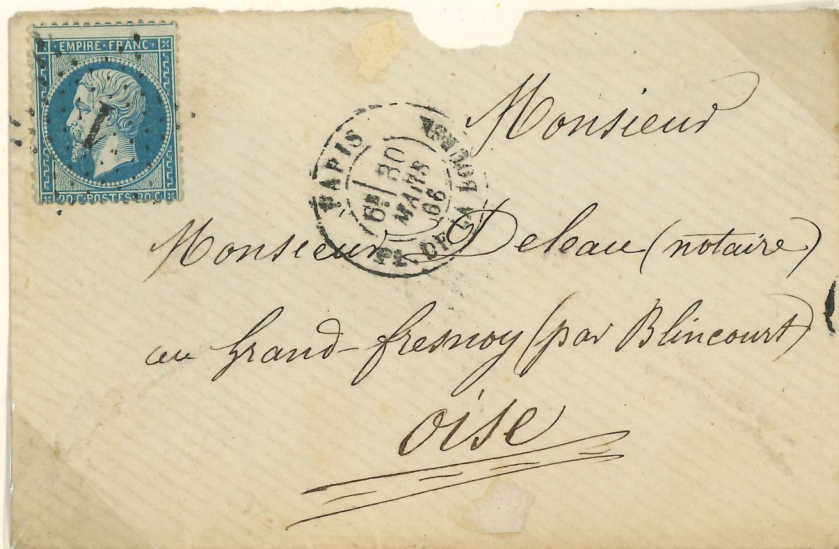 EMPIRE · FRANC ·
1
20 C POSTES 20 C
PARIS
PL. DE LA BOURSE
6E
30
MARS
66
Monsieur
Monsieur Deleau (notaire)
au grand-fresnoy (par Blincourt)
Oise